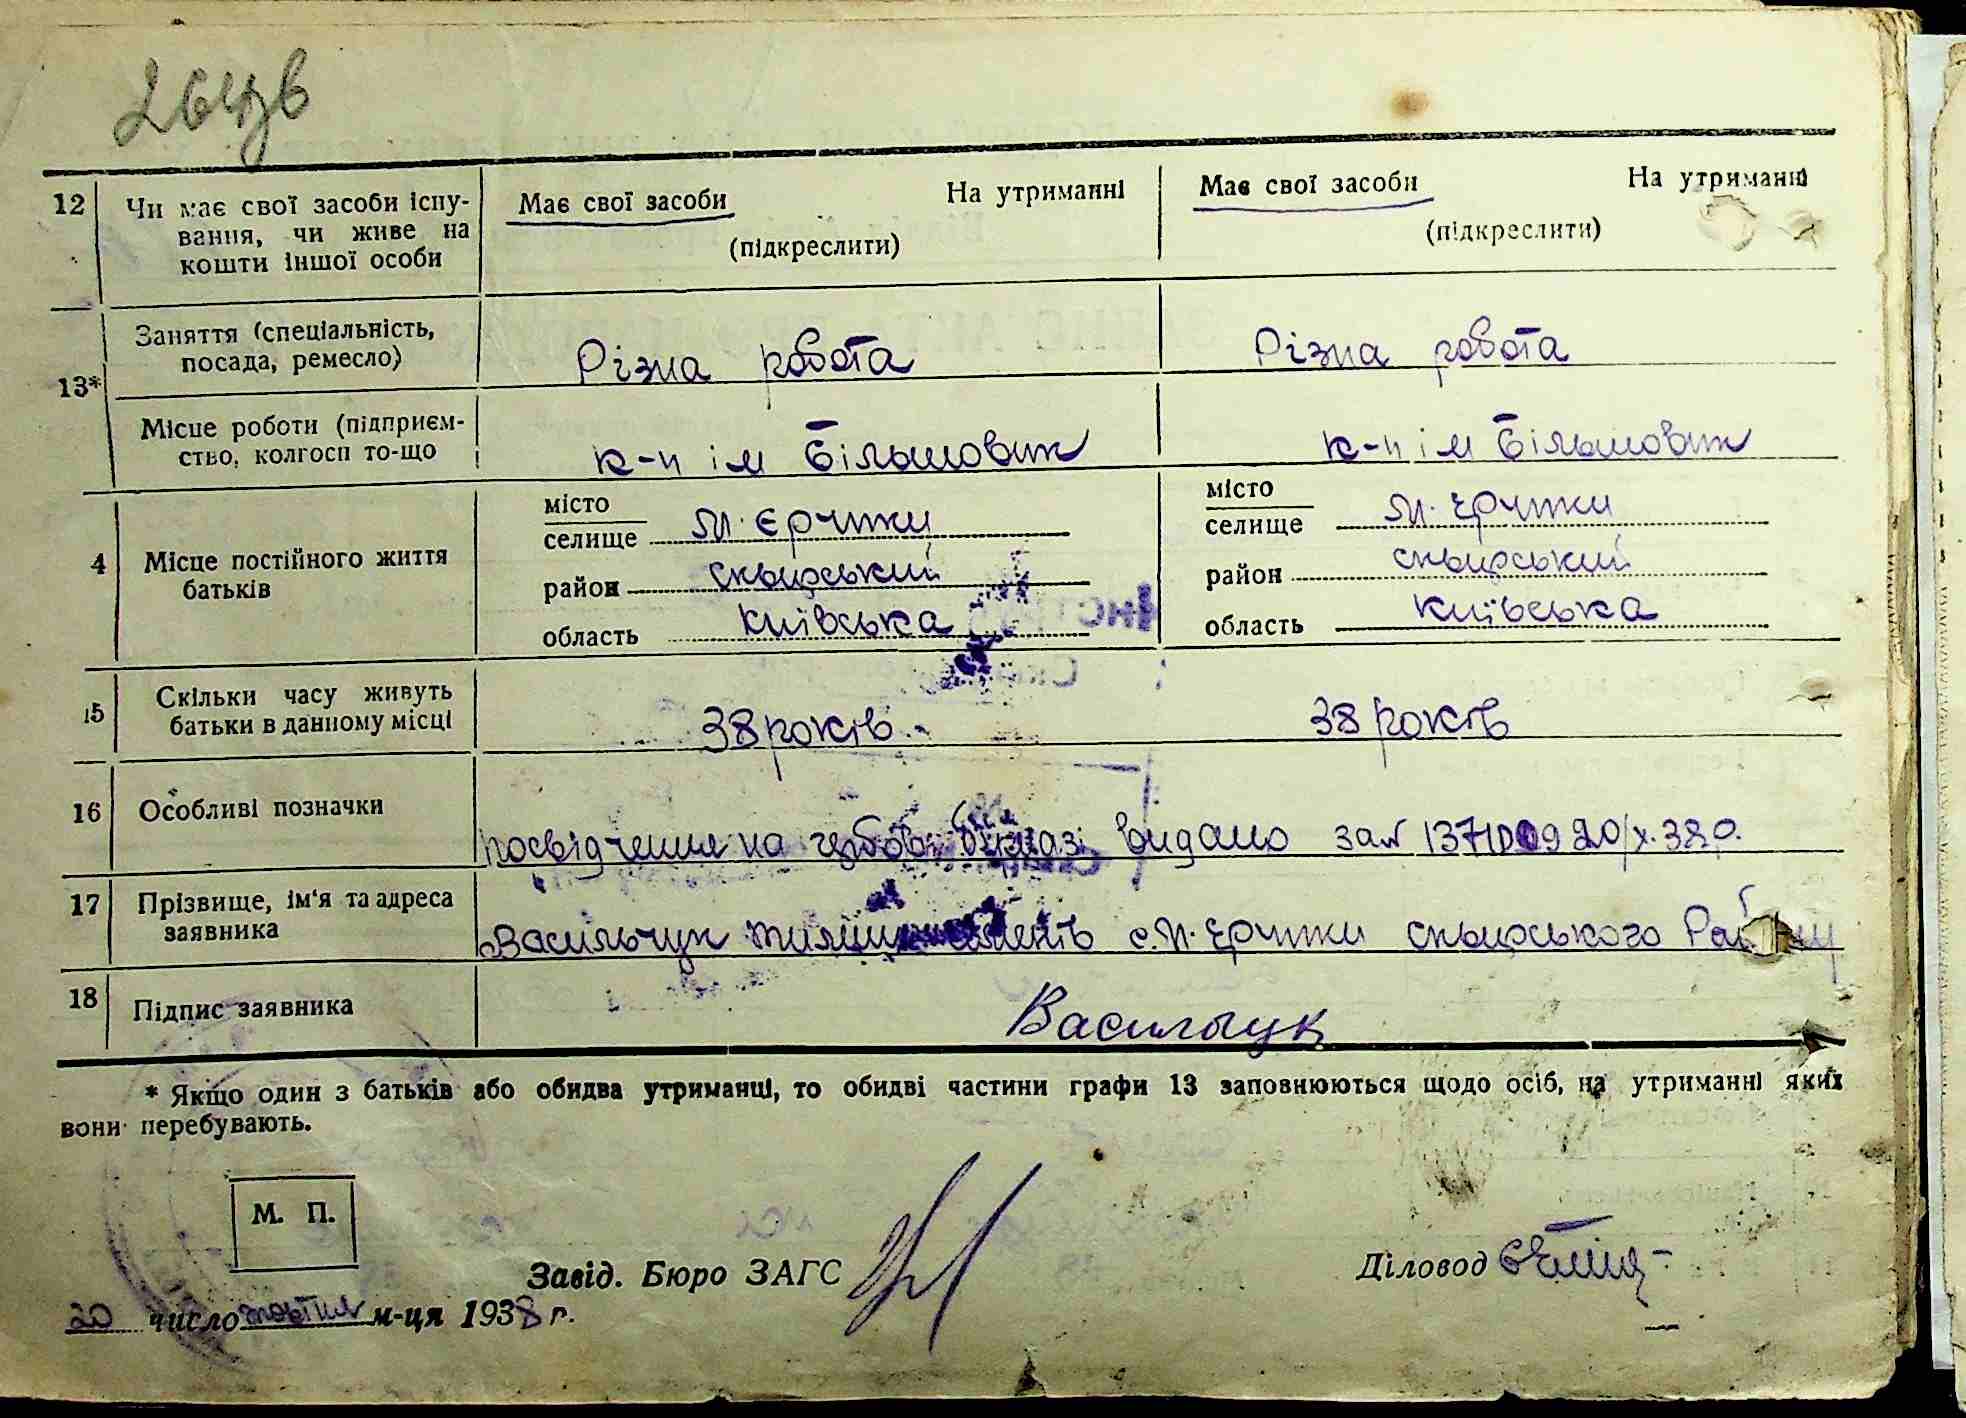 12 Чи має свої засоби існу-
вання, чи живе на
кошти іншої особи
Має свої засоби На утриманні
(підкреслити)
Має свої засоби На утриманні
(підкреслити)
13*
Заняття (спеціальність,
посада, ремесло)
Різна робота
Різна робота
Місце роботи (підприєм-
ство, колгосп то-що
к-п ім Більшовик
к-п ім Більшовик
4 Місце постійного життя
батьків
місто
селище м. Єрчики
район сквирський
область київська
місто
селище м. Єрчики
район сквирський
область київська
15 Скільки часу живуть
батьки в данному місці
38 років
38 років
16 Особливі позначки
посвідчення на видано за №
17 Прізвище, ім'я та адреса
заявника
Васильчук с. М. Єрчики сквирського Району
18 Підпис заявника
Васильчук
* Якщо один з батьків або обидва утриманці, то обидві частини графи 13 заповнюються щодо осіб, на утриманні яких
вони перебувають.
М. П.
Завід. Бюро ЗАГС
Діловод
20 число жовтня м-ця 1938 г.